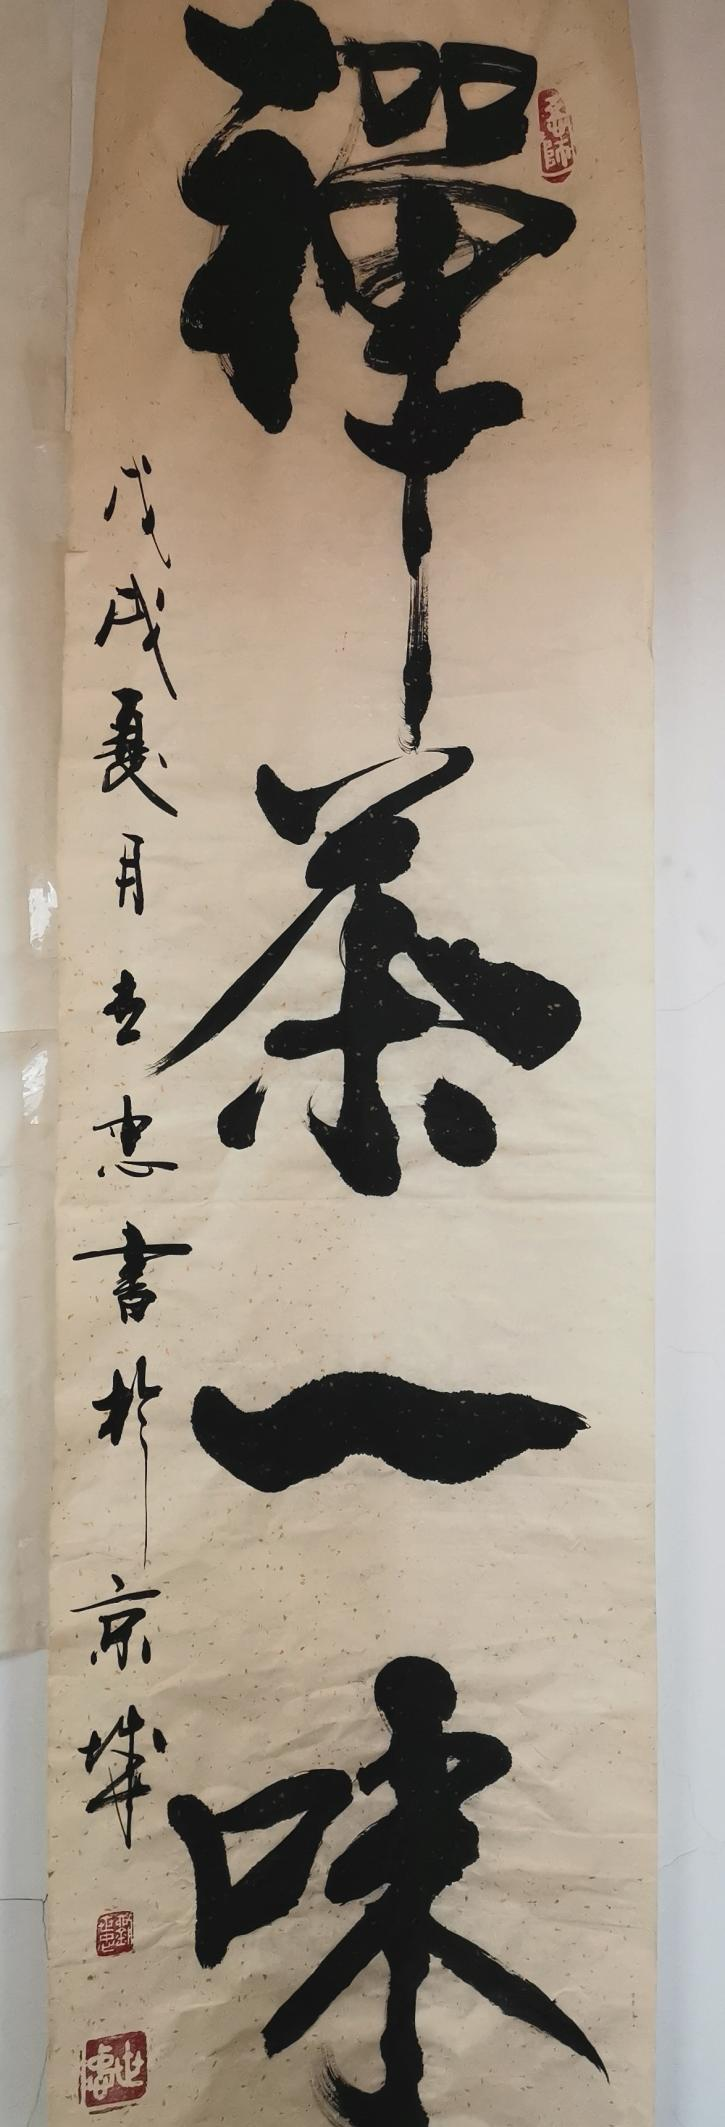 禪茶一味
戊戌夏月世忠書於京城